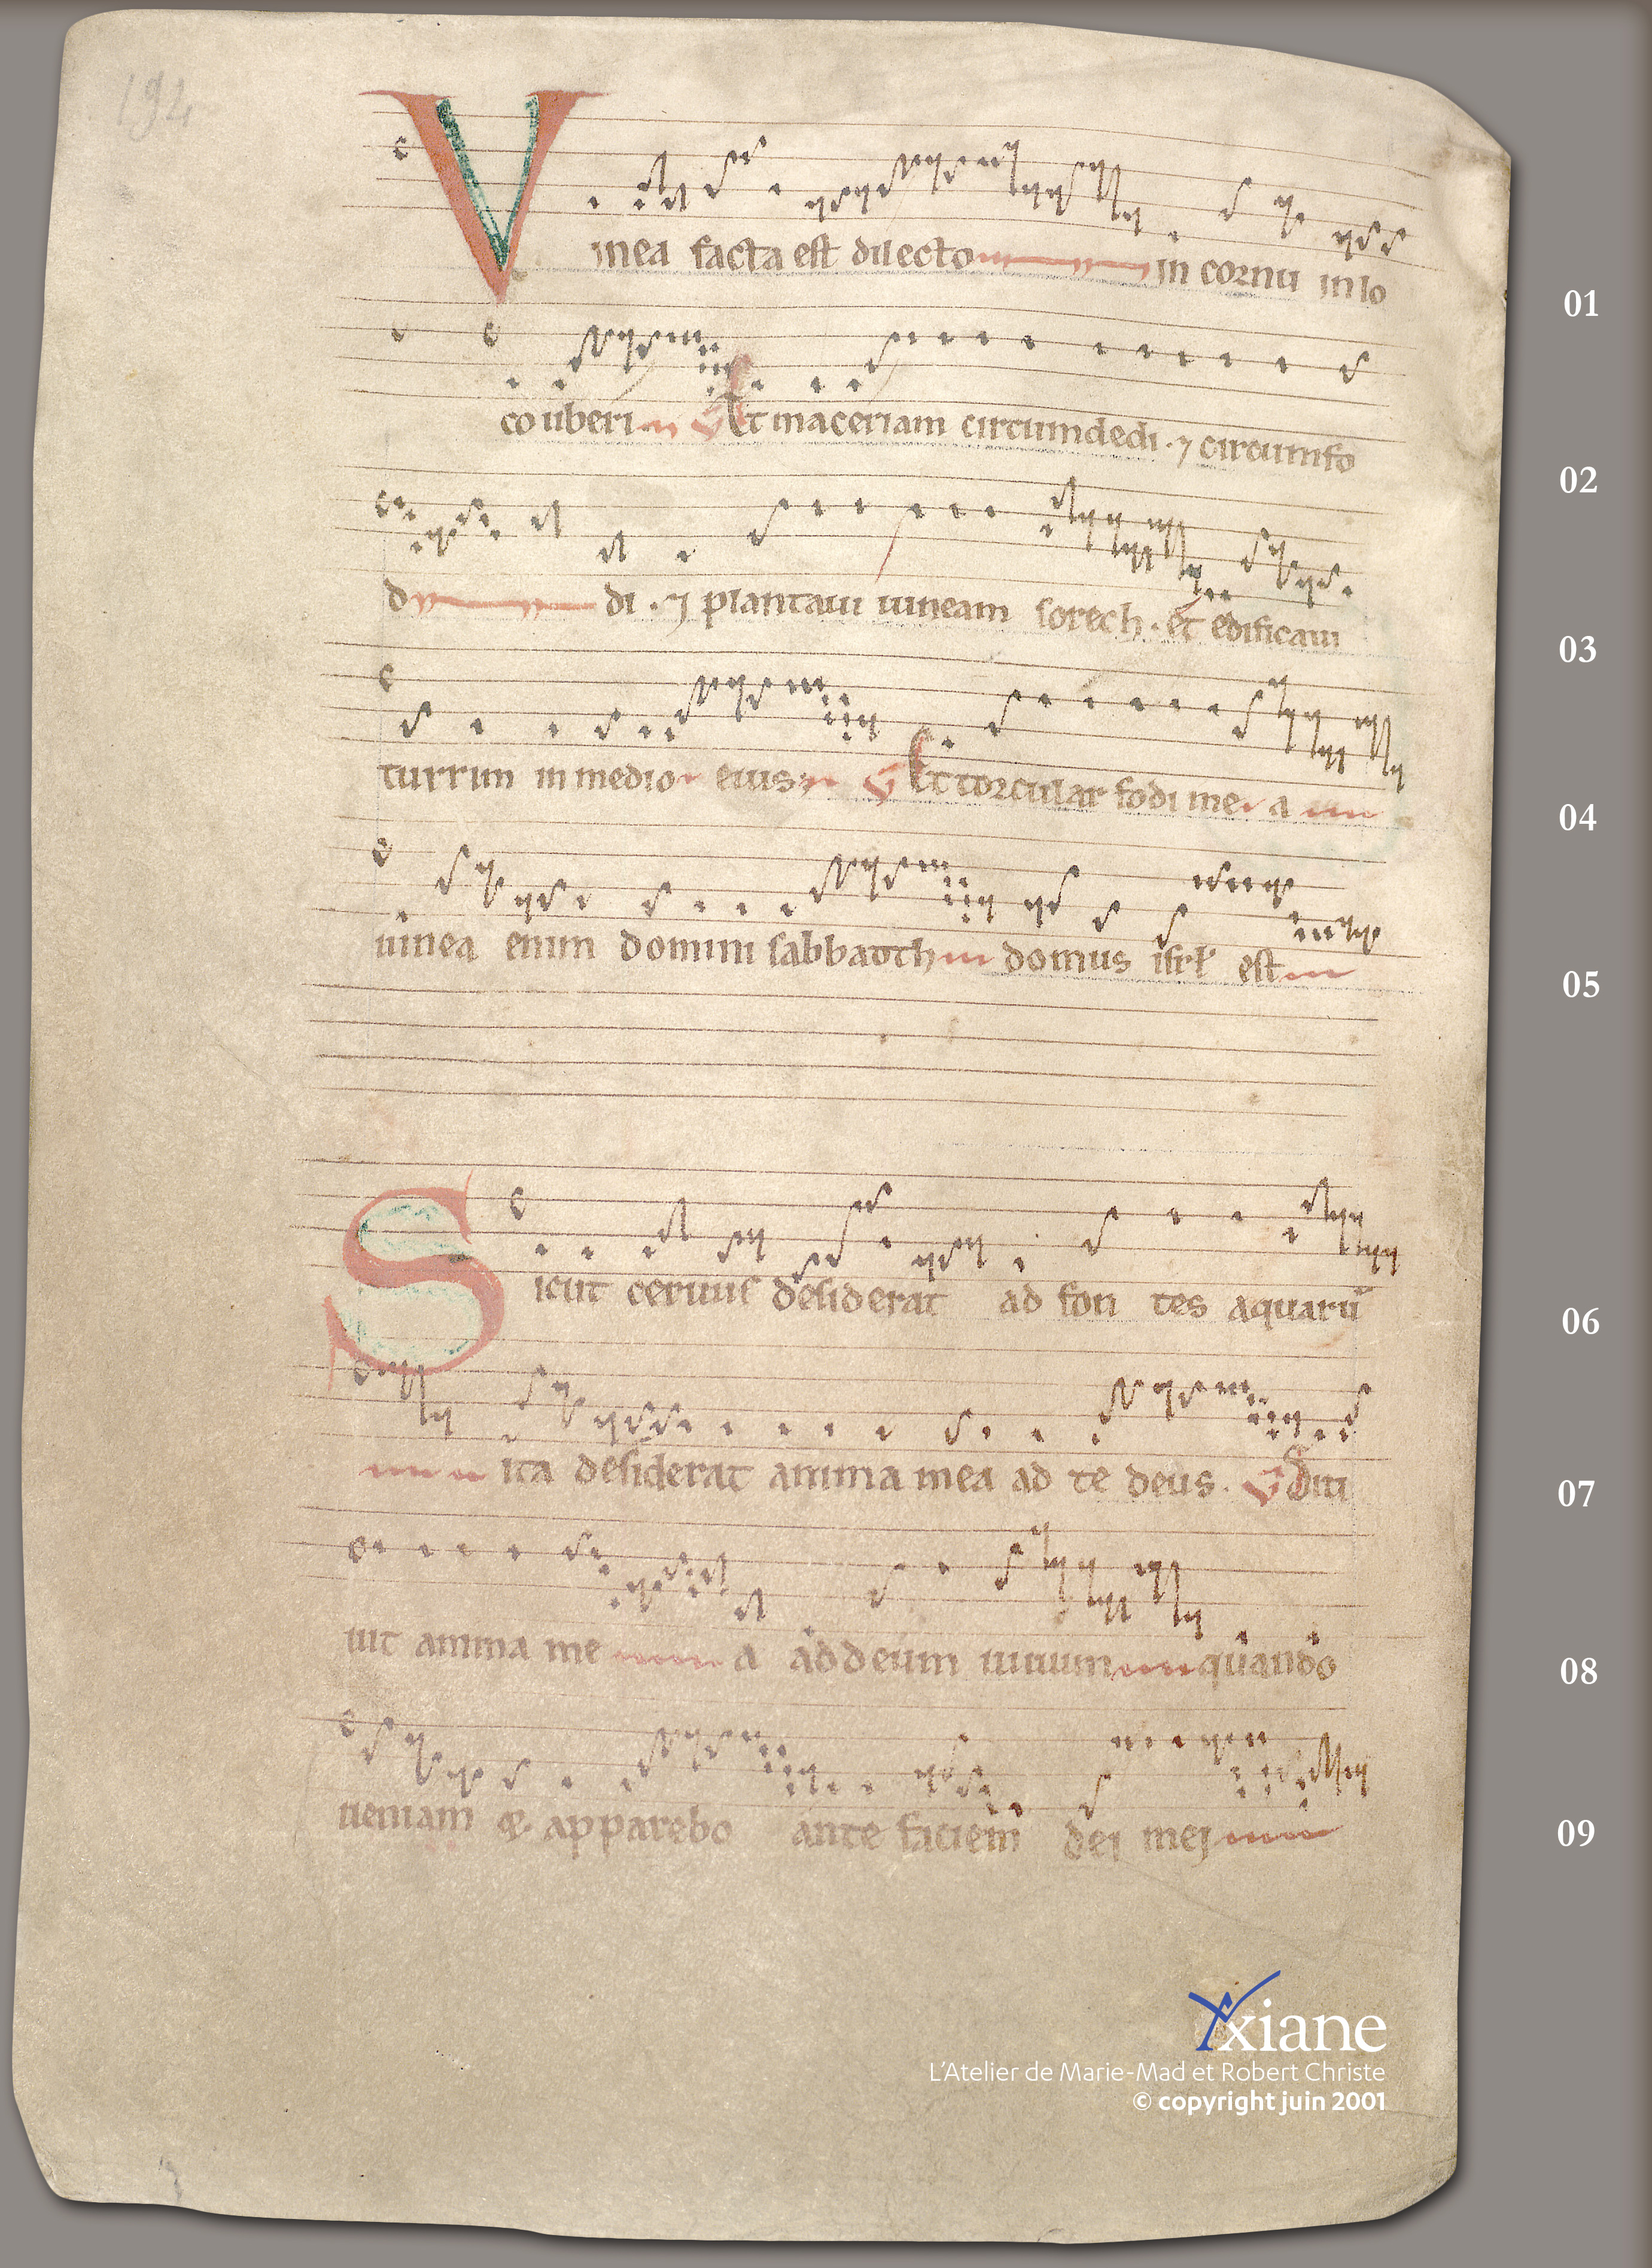 194
Vinea facta est dilecto in cornu in lo
01
co uberi Et maceriam circumdedi . ⁊ circumfo
02
di . ⁊ plantaui uineam sorech . et edificaui
03
turrim in medio eius Et torcular fodi mea
04
uinea enim domini sabbaoth domus isrł est
05
Sicut ceruus desiderat ad fontes aquarū
06
ita desiderat anima mea ad te deus . Siti
07
uit anima mea ad deum uiuum quando
08
ueniam & apparebo ante faciem dei mei
09
Yxiane
L’Atelier de Marie-Mad et Robert Christe
© copyright juin 2001